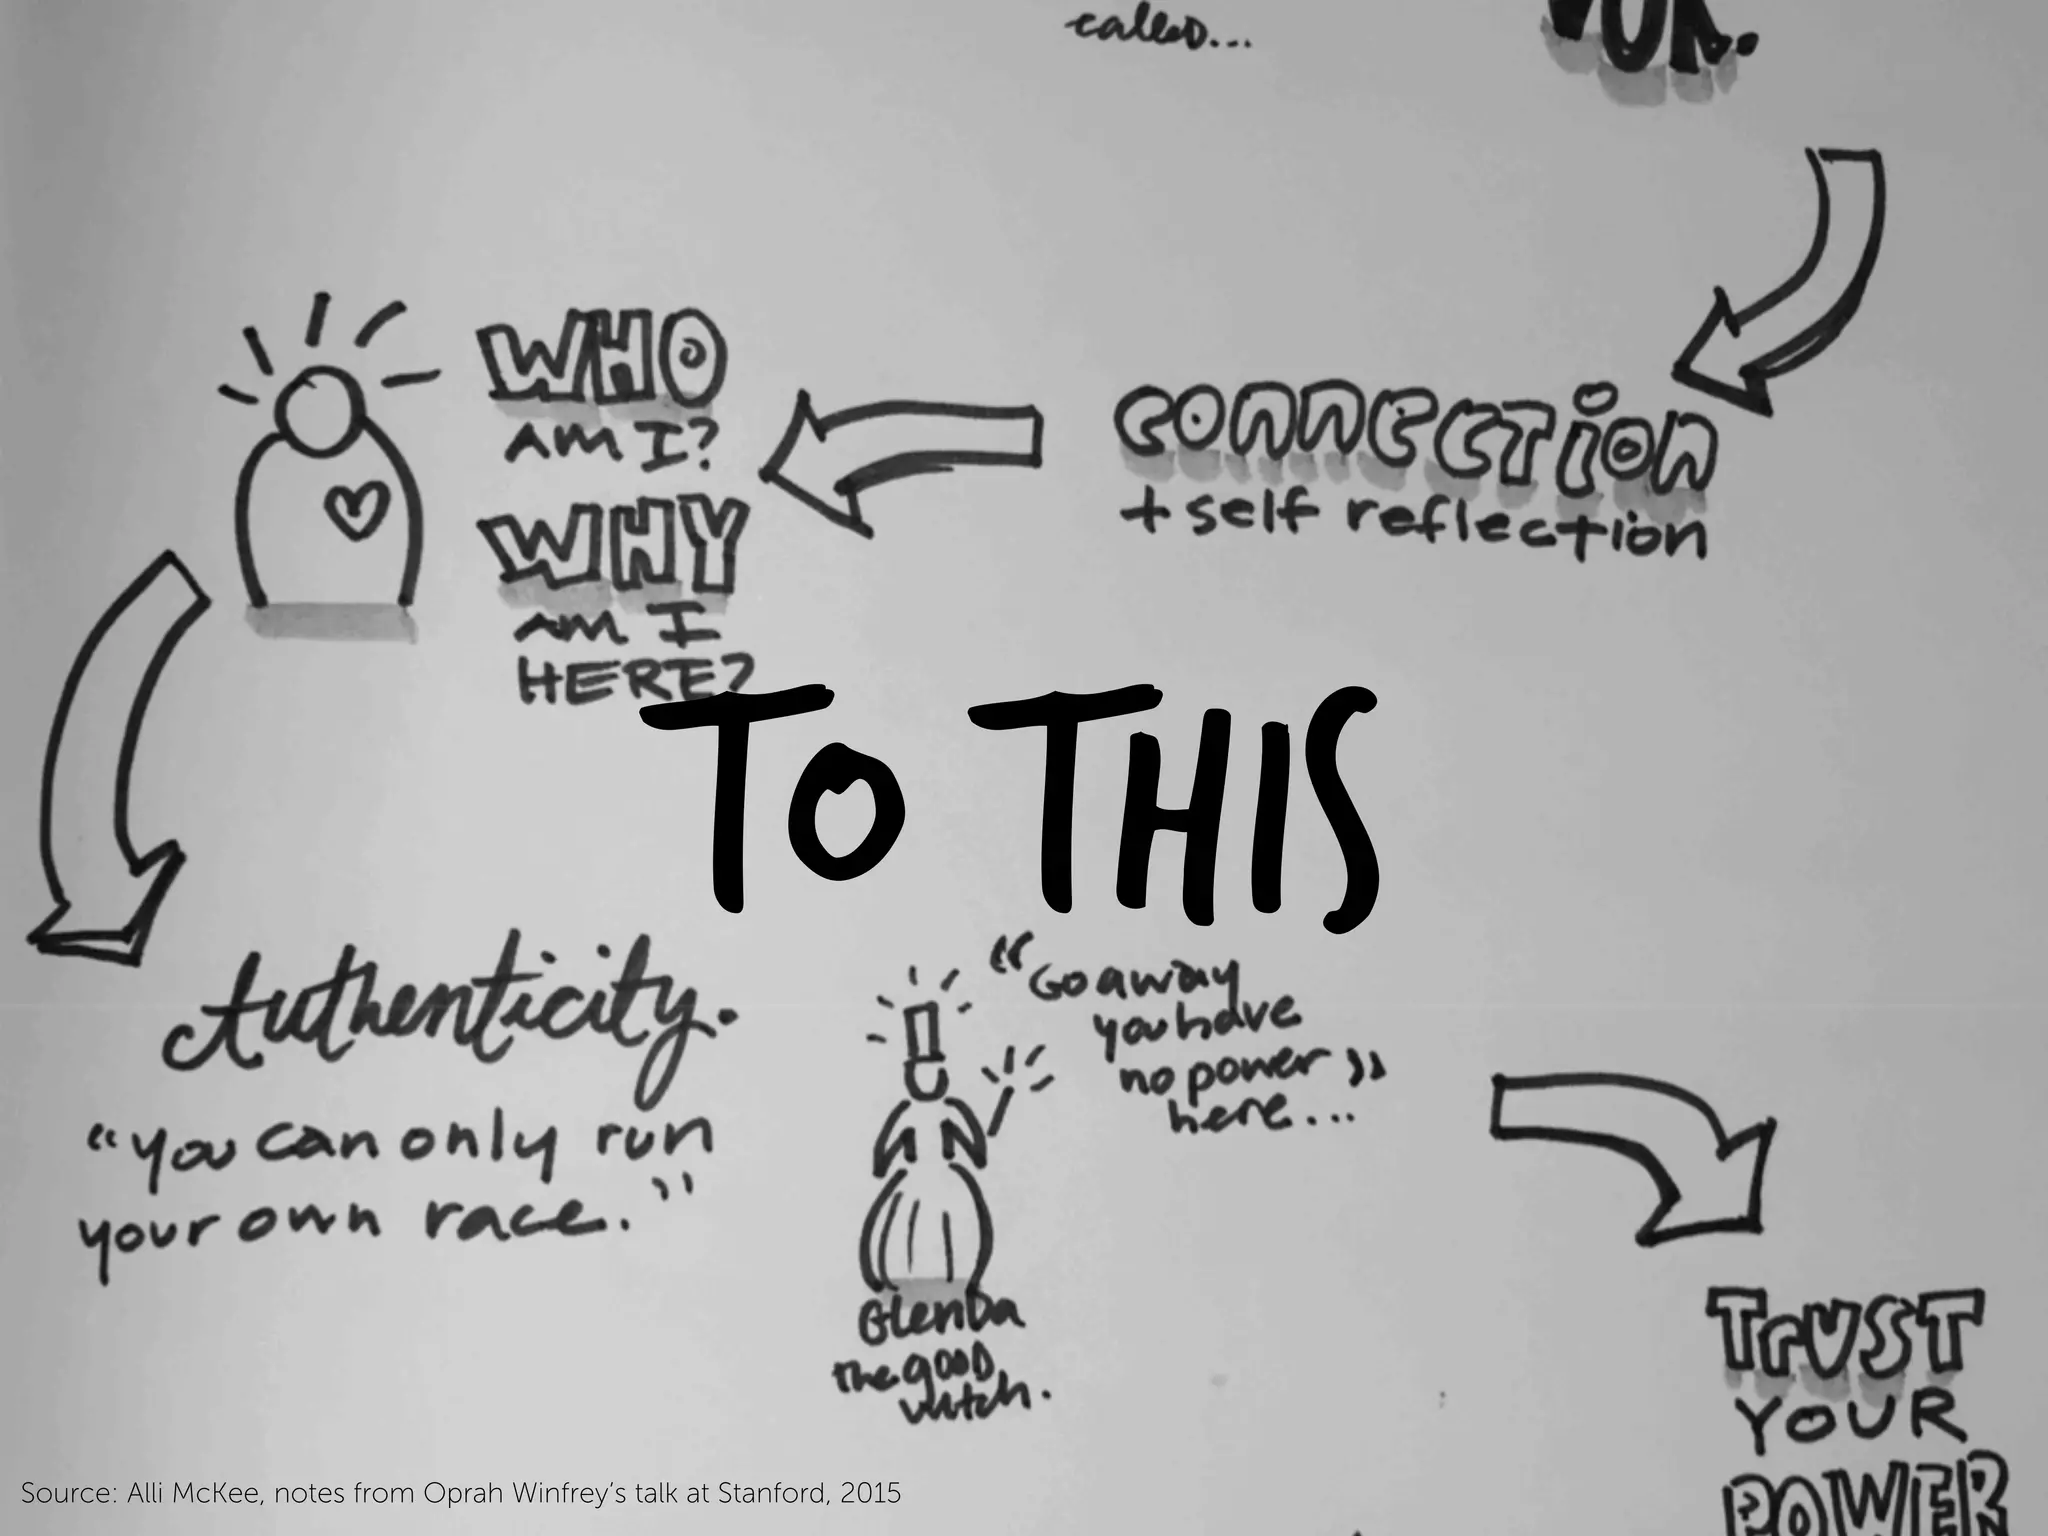 called...
WHO
AM I?
WHY
AM I
HERE?
CONNECTION
+ self reflection
TO THIS
Authenticity.
"you can only run
your own race."
"Go away
you have
no power"
here...
Glenda
the good
witch.
TRUST
YOUR
POWER
Source: Alli McKee, notes from Oprah Winfrey's talk at Stanford, 2015